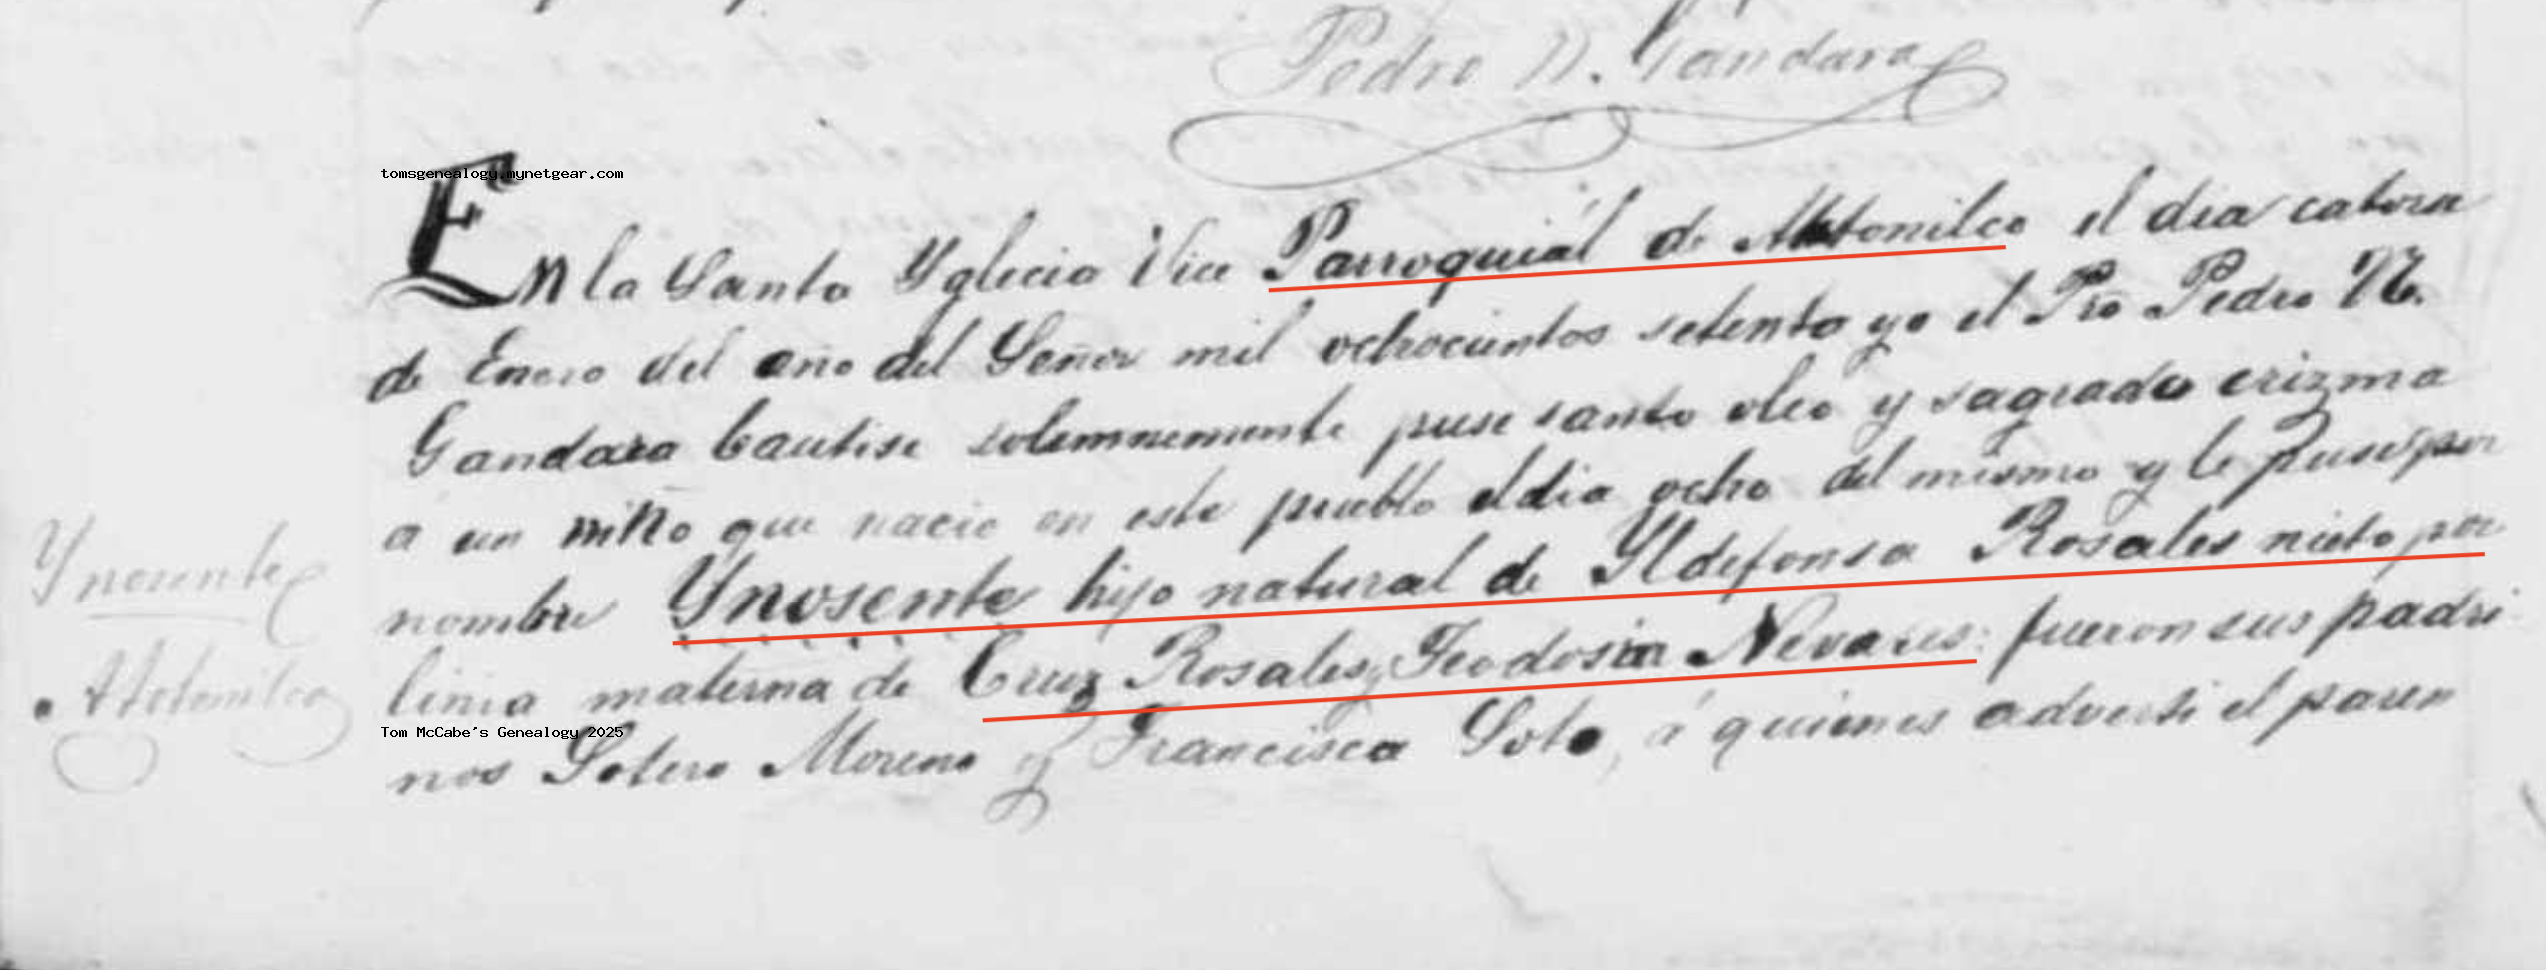 Pedro N. Gandara
tomsgenealogy.mynetgear.com
En la Santa Yglecia Vice Parroquial de Atotonilco el dia catorse
de Enero del año del Señor mil ochocientos setenta yo el Pro Pedro N.
Gandara bautise solemnemente puse santo oleo y sagrado crizma
a un niño que nacio en este pueblo el dia ocho del mismo y le puse por
nombre Ynosente hijo natural de Yldefonsa Rosales nieto por
Ynosente
linia materna de Cruz Rosales y Teodosia Nevares: fueron sus padri
Atotonilco
Tom McCabe's Genealogy 2025
nos Sotero Moreno y Francisca Soto, á quienes adverti el paren